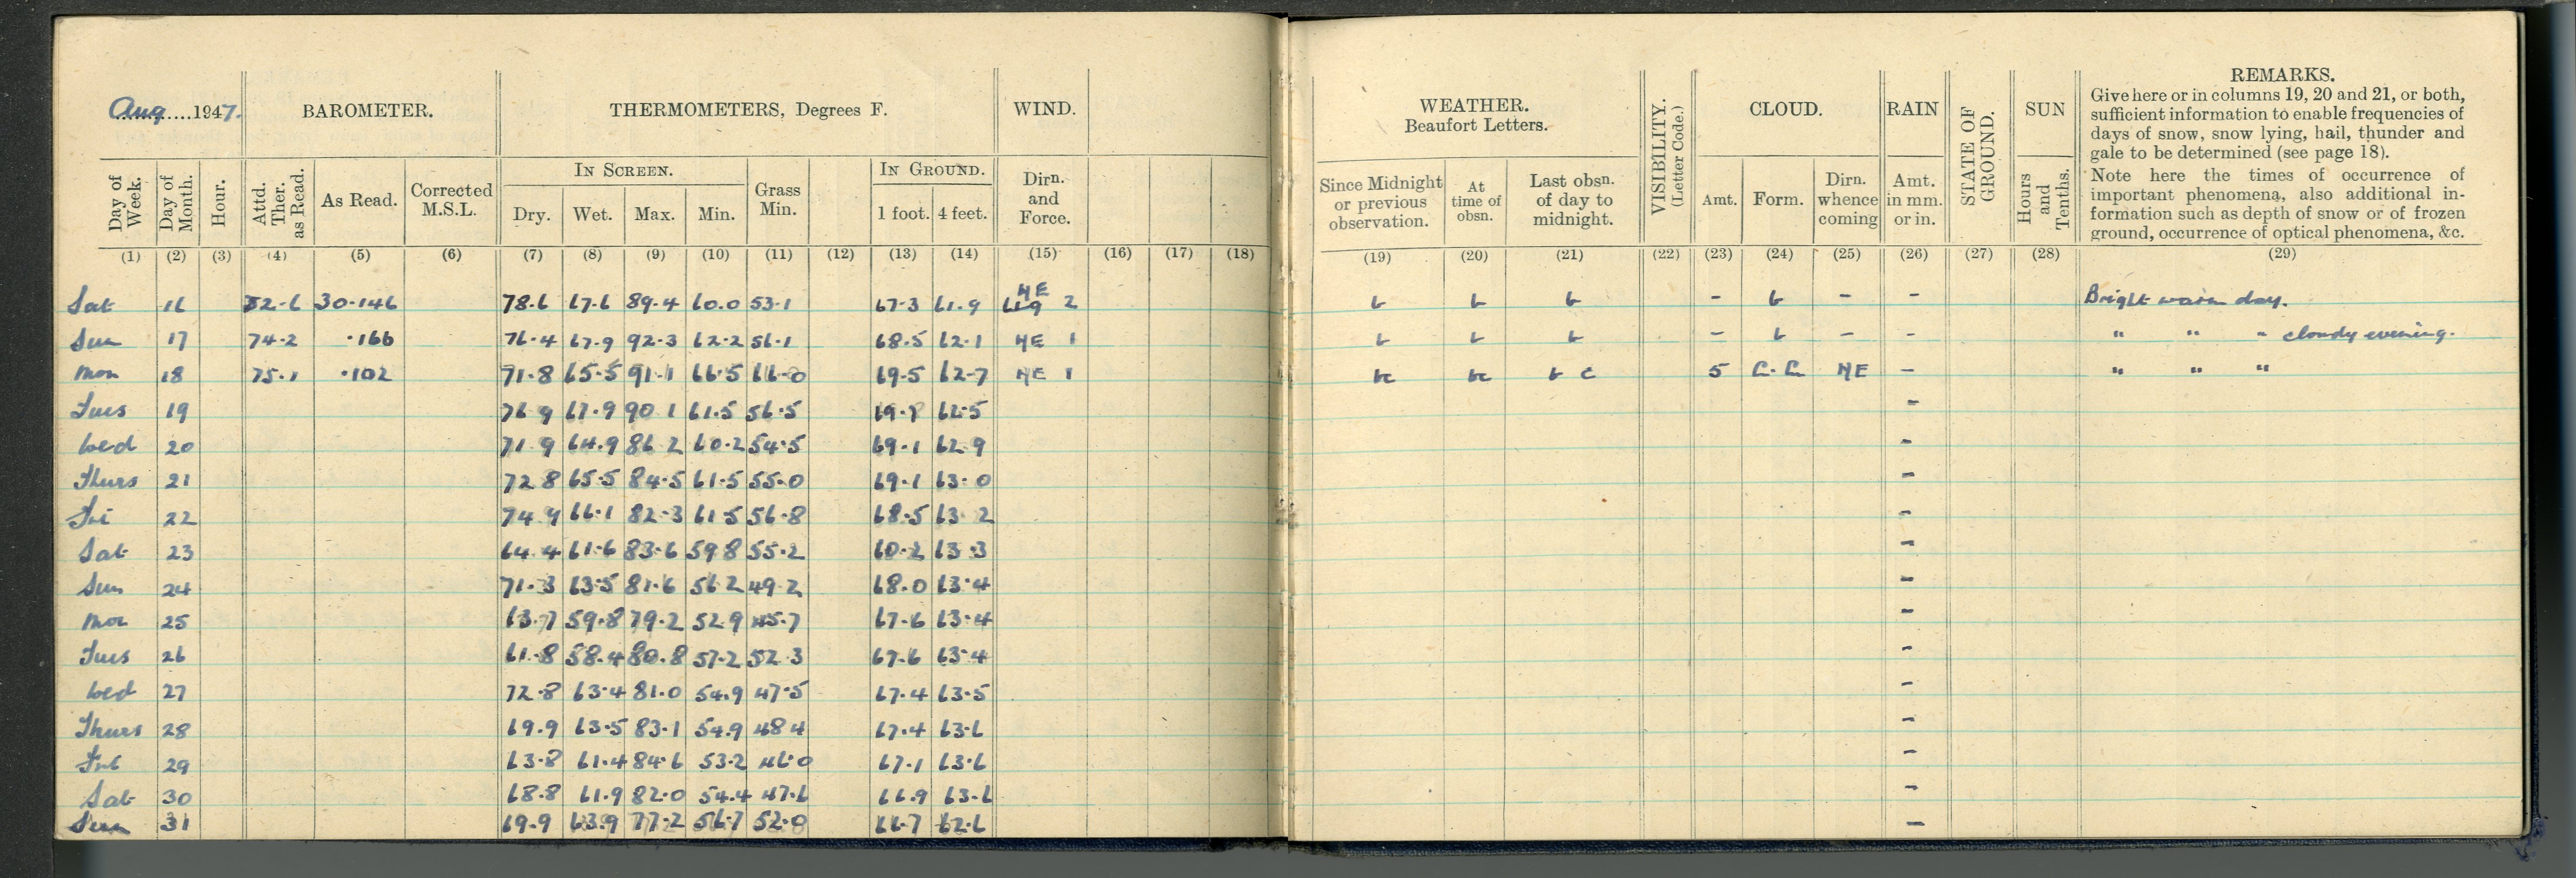 Aug.....1947.
BAROMETER.
THERMOMETERS, Degrees F.
WIND.
Day of Week.
Day of Month.
Hour.
Attd. Ther. as Read.
As Read.
Corrected M.S.L.
IN SCREEN.
Dry. Wet. Max. Min.
Grass Min.
IN GROUND.
1 foot. 4 feet.
Dirn. and Force.
(1) (2) (3) (4) (5) (6) (7) (8) (9) (10) (11) (12) (13) (14) (15) (16) (17) (18)
Sat 16 30.146 78.6 67.6 89.4 60.0 53.1 67.3 61.9 NE 2
Sun 17 74.2 .166 76.4 67.9 92.3 62.2 56.1 68.5 62.1 NE 1
Mon 18 75.1 .102 71.8 65.5 91.1 66.5 66.0 69.5 62.7 NE 1
Tues 19 76 9 67.9 90 1 61.5 56.5 62.5
Wed 20 71.9 64.9 86 2 60.2 54.5 69.1 62 9
Thurs 21 72 8 65.5 84.5 61.5 55.0 69.1 63.0
Fri 22 74.9 66.1 82.3 61 5 56.8 68.5 63 2
Sat 23 64.4 61.6 83.6 59 8 55.2 60.2 63.3
Sun 24 71.3 63.5 81.6 56 2 49.2 68.0 63.4
Mon 25 63.7 59.8 79.2 52.9 45.7 67.6 63.4
Tues 26 61.8 58.4 80.8 57.2 52 3 67.6 63.4
Wed 27 72.8 63.4 81.0 54.9 47.5 67.4 63.5
Thurs 28 69.9 63.5 83.1 54.9 48 4 67.4 63.6
Fri 29 63.8 61.4 84.6 53.2 46.0 67.1 63.6
Sat 30 68.8 61.9 82.0 54.4 47.6 66.9 63.6
Sun 31 69.9 63.9 77.2 56.7 52.0 66.7 62.6
WEATHER.
Beaufort Letters.
VISIBILITY. (Letter Code.)
CLOUD.
RAIN
STATE OF GROUND.
SUN
REMARKS.
Give here or in columns 19, 20 and 21, or both,
sufficient information to enable frequencies of
days of snow, snow lying, hail, thunder and
gale to be determined (see page 18).
Note here the times of occurrence of
important phenomena, also additional in-
formation such as depth of snow or of frozen
ground, occurrence of optical phenomena, &c.
Since Midnight or previous observation.
At time of obsn.
Last obsn. of day to midnight.
Amt. Form.
Dirn. whence coming
Amt. in mm. or in.
Hours and Tenths.
(19) (20) (21) (22) (23) (24) (25) (26) (27) (28) (29)
b b b - b - - Bright warm day.
b b b - b - - " " " cloudy evening.
bc bc b c 5 NE - " " "
-
-
-
-
-
-
-
-
-
-
-
-
-